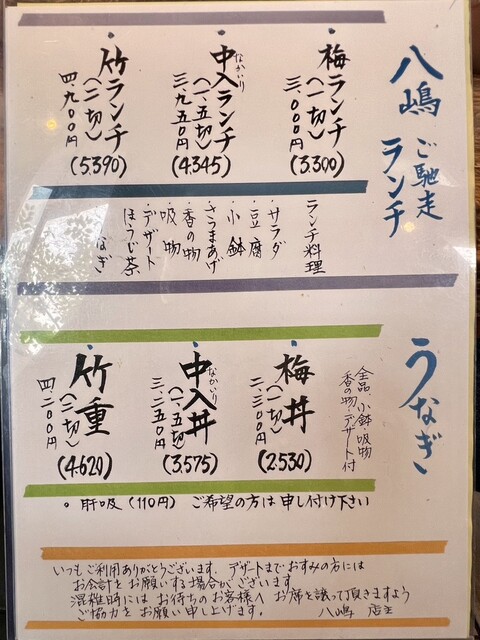 八嶋 ご馳走
ランチ
梅ランチ
(一切)
三、〇〇〇円
(3.300)
なかいり
中入ランチ
(一、五切)
三、九五〇円
(4.345)
竹ランチ
(二切)
四、九〇〇円
(5.390)
ランチ料理
・サラダ
・豆腐
・小鉢
・さつまあげ
・香の物
・吸物
・デザート
・ほうじ茶
なぎ
うなぎ
全品、小鉢・吸物
香の物・デザート付
梅丼
(一切)
二、三〇〇円
(2.530)
なかいり
中入丼
(一、五切)
三、二五〇円
(3.575)
竹重
(二切)
四、二〇〇円
(4.620)
○ 肝吸 (110円) ご希望の方は申し付け下さい
いつもご利用ありがとうございます、デザートまでおすみの方には
お会計をお願いする場合がございます
混雑時にはお待ちのお客様へお席を譲って頂きますよう
ご協力をお願い申し上げます。 八嶋 店主